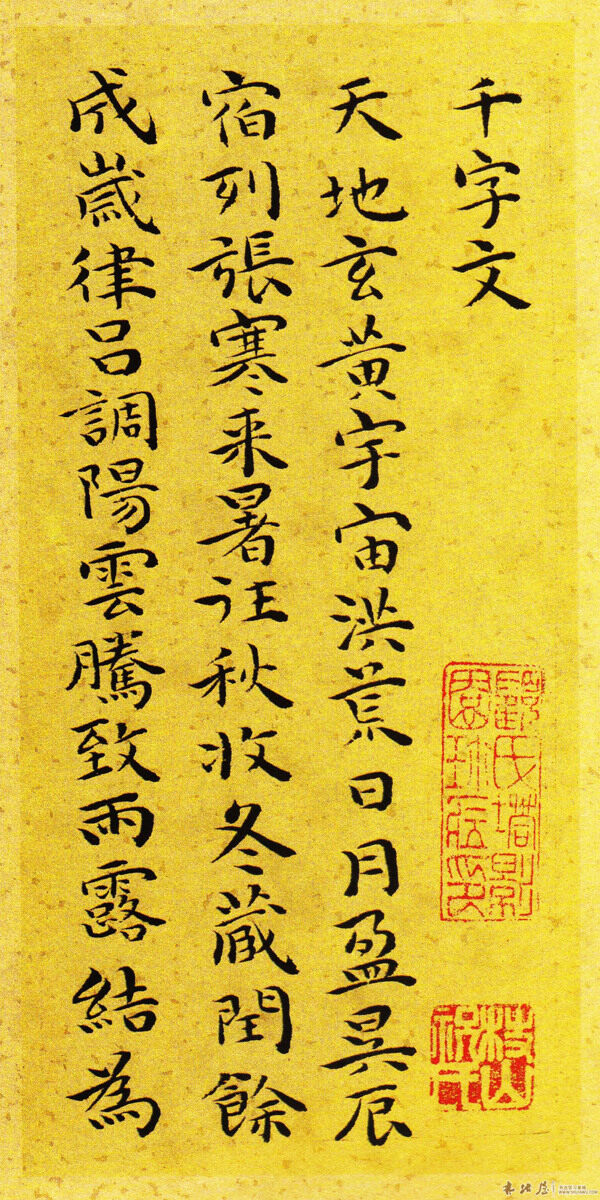 千字文
天地玄黃宇宙洪荒日月盈昃辰
宿列張寒来暑往秋收冬蔵閏餘
成嵗律呂調陽雲騰致雨露結為